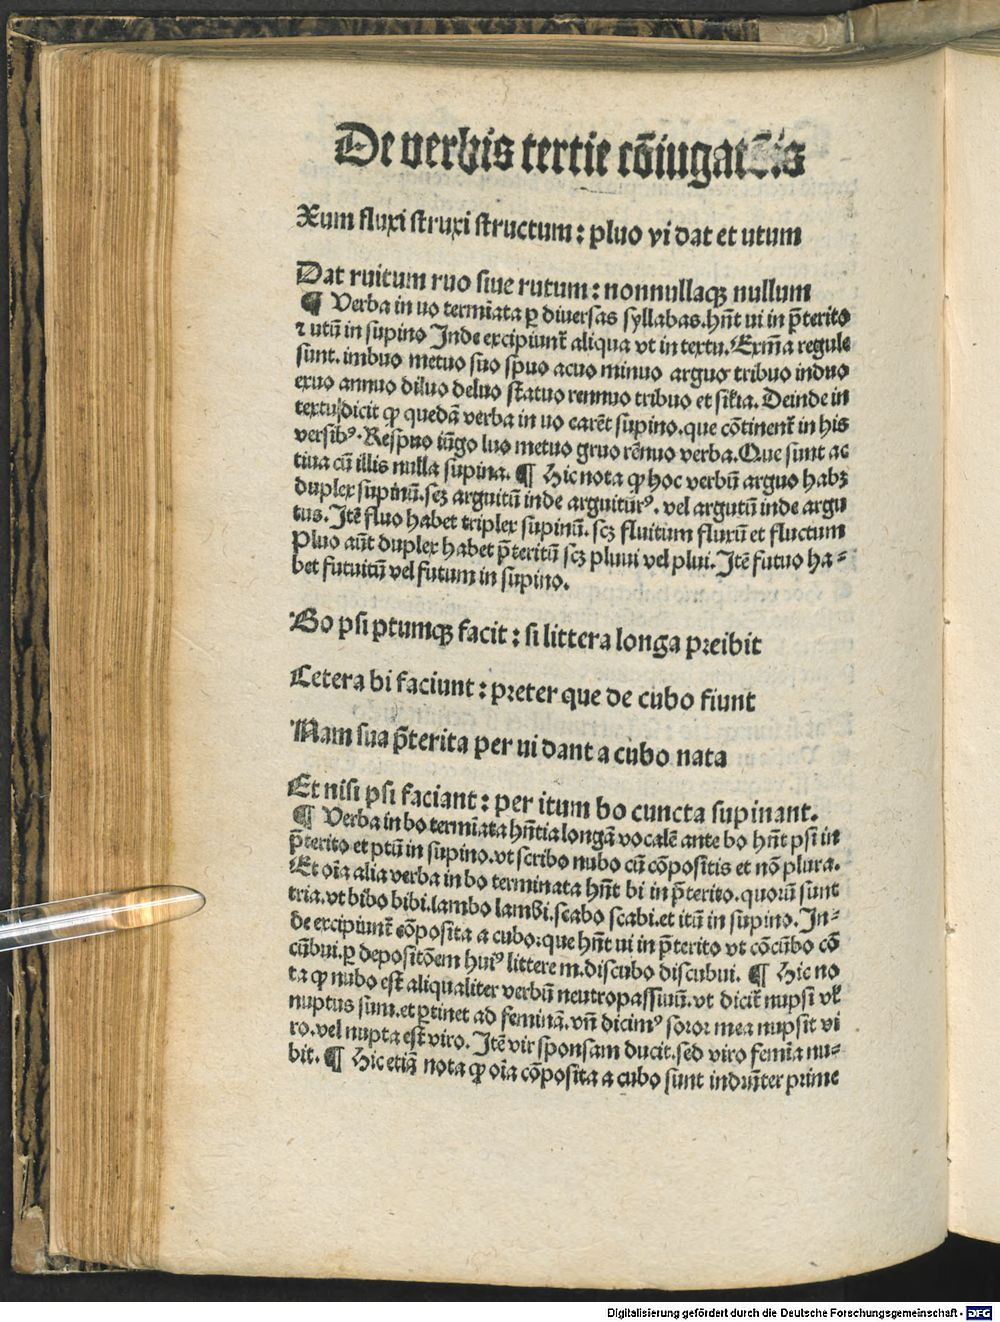 De verbis tertie cōiugatōis
Xum fluxi struxi structum : pluo vi dat et utum
Dat ruitum ruo siue rutum : nonnullaqꝫ nullum
¶ Verba in uo termīata ꝑ diuersas syllabas. hn̄t ui in p̄terito
⁊ utū in supino Inde excipiunt̄ aliqua vt in textu. Exm̄a regule
sunt. imbuo metuo suo spuo acuo minuo arguo tribuo induo
exuo annuo diluo deluo statuo rennuo tribuo et sil̄ia. Deinde in
textu dicit ꝙ quedā verba in uo carēt supino. que cōtinent̄ in his
versibꝰ. Respuo iūgo luo metuo gruo rēnuo verba. Que sunt ac
tiua cū illis nulla supina. ¶ Hic nota ꝙ hoc verbū arguo habꝫ
duplex supinū. scꝫ arguitū inde arguiturꝰ. vel argutū inde argu
tus. Itē fluo habet triplex supinū. scꝫ fluitum fluxū et fluctum
Pluo aūt duplex habet p̄teritū scꝫ pluui vel plui. Itē futuo ha-
bet futuitū vel futum in supino.
Bo psi ptumqꝫ facit : si littera longa preibit
Cetera bi faciunt : preter que de cubo fiunt
Nam sua p̄terita per ui dant a cubo nata
Et nisi psi faciant : per itum bo cuncta supinant.
¶ Verba in bo termīata hn̄tia longā vocalē ante bo hn̄t psi in
p̄terito et ptū in supino. vt scribo nubo cū cōpositis et nō plura.
Et oīa alia verba in bo terminata hn̄t bi in p̄terito. quorū sunt
tria. vt bibo bibi. lambo lambi. scabo scabi. et itū in supino. In-
de excipiunt̄ cōposita a cubo. que hn̄t ui in p̄terito vt cōcūbo cō
cūbui. ꝑ depositōem huiꝰ littere m. discubo discubui. ¶ Hic no
ta ꝙ nubo est aliqualiter verbū neutropassiuū. vt dicit̄ nupsi vl̄
nuptus sum. et ꝑtinet ad feminā. vn̄ dicimꝰ soror mea nupsit vi
ro. vel nupta est viro. Itē vir sponsam ducit. sed viro femīa nu-
bit. ¶ Hic etiā nota ꝙ oīa cōposita a cubo sunt indrn̄ter prime
Digitalisierung gefördert durch die Deutsche Forschungsgemeinschaft - DFG